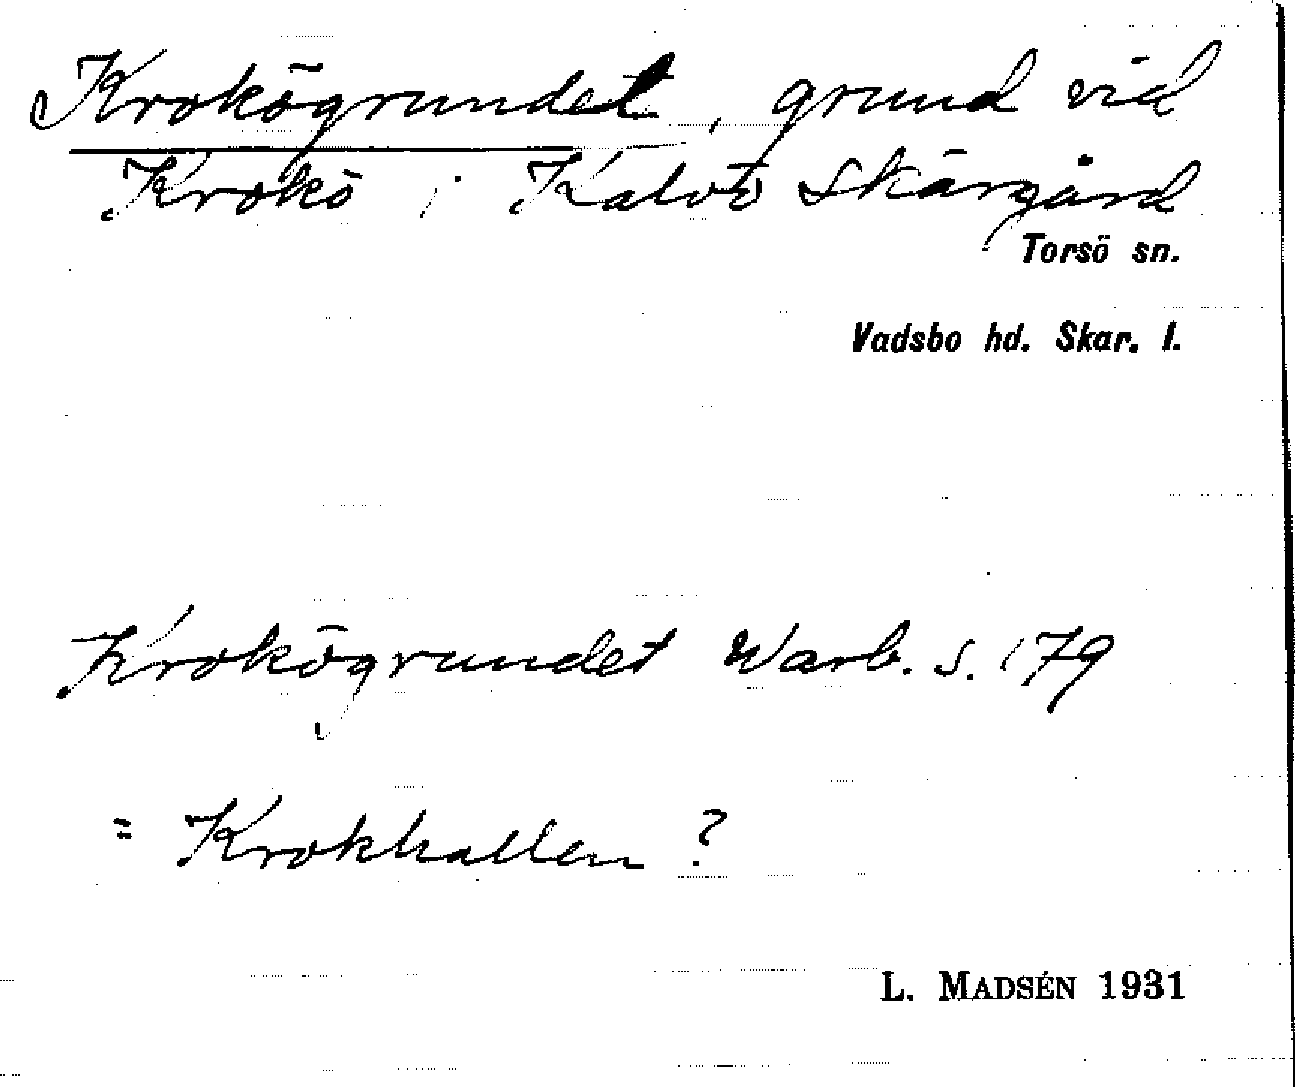 Krokögrundet, grund vid
Krokö i Kalvö skärgård
Torsö sn.
Vadsbo hd. Skar. l.
Krokögrundet Warb. s. 179
= Krokhallen ?
L. MADSÉN 1931